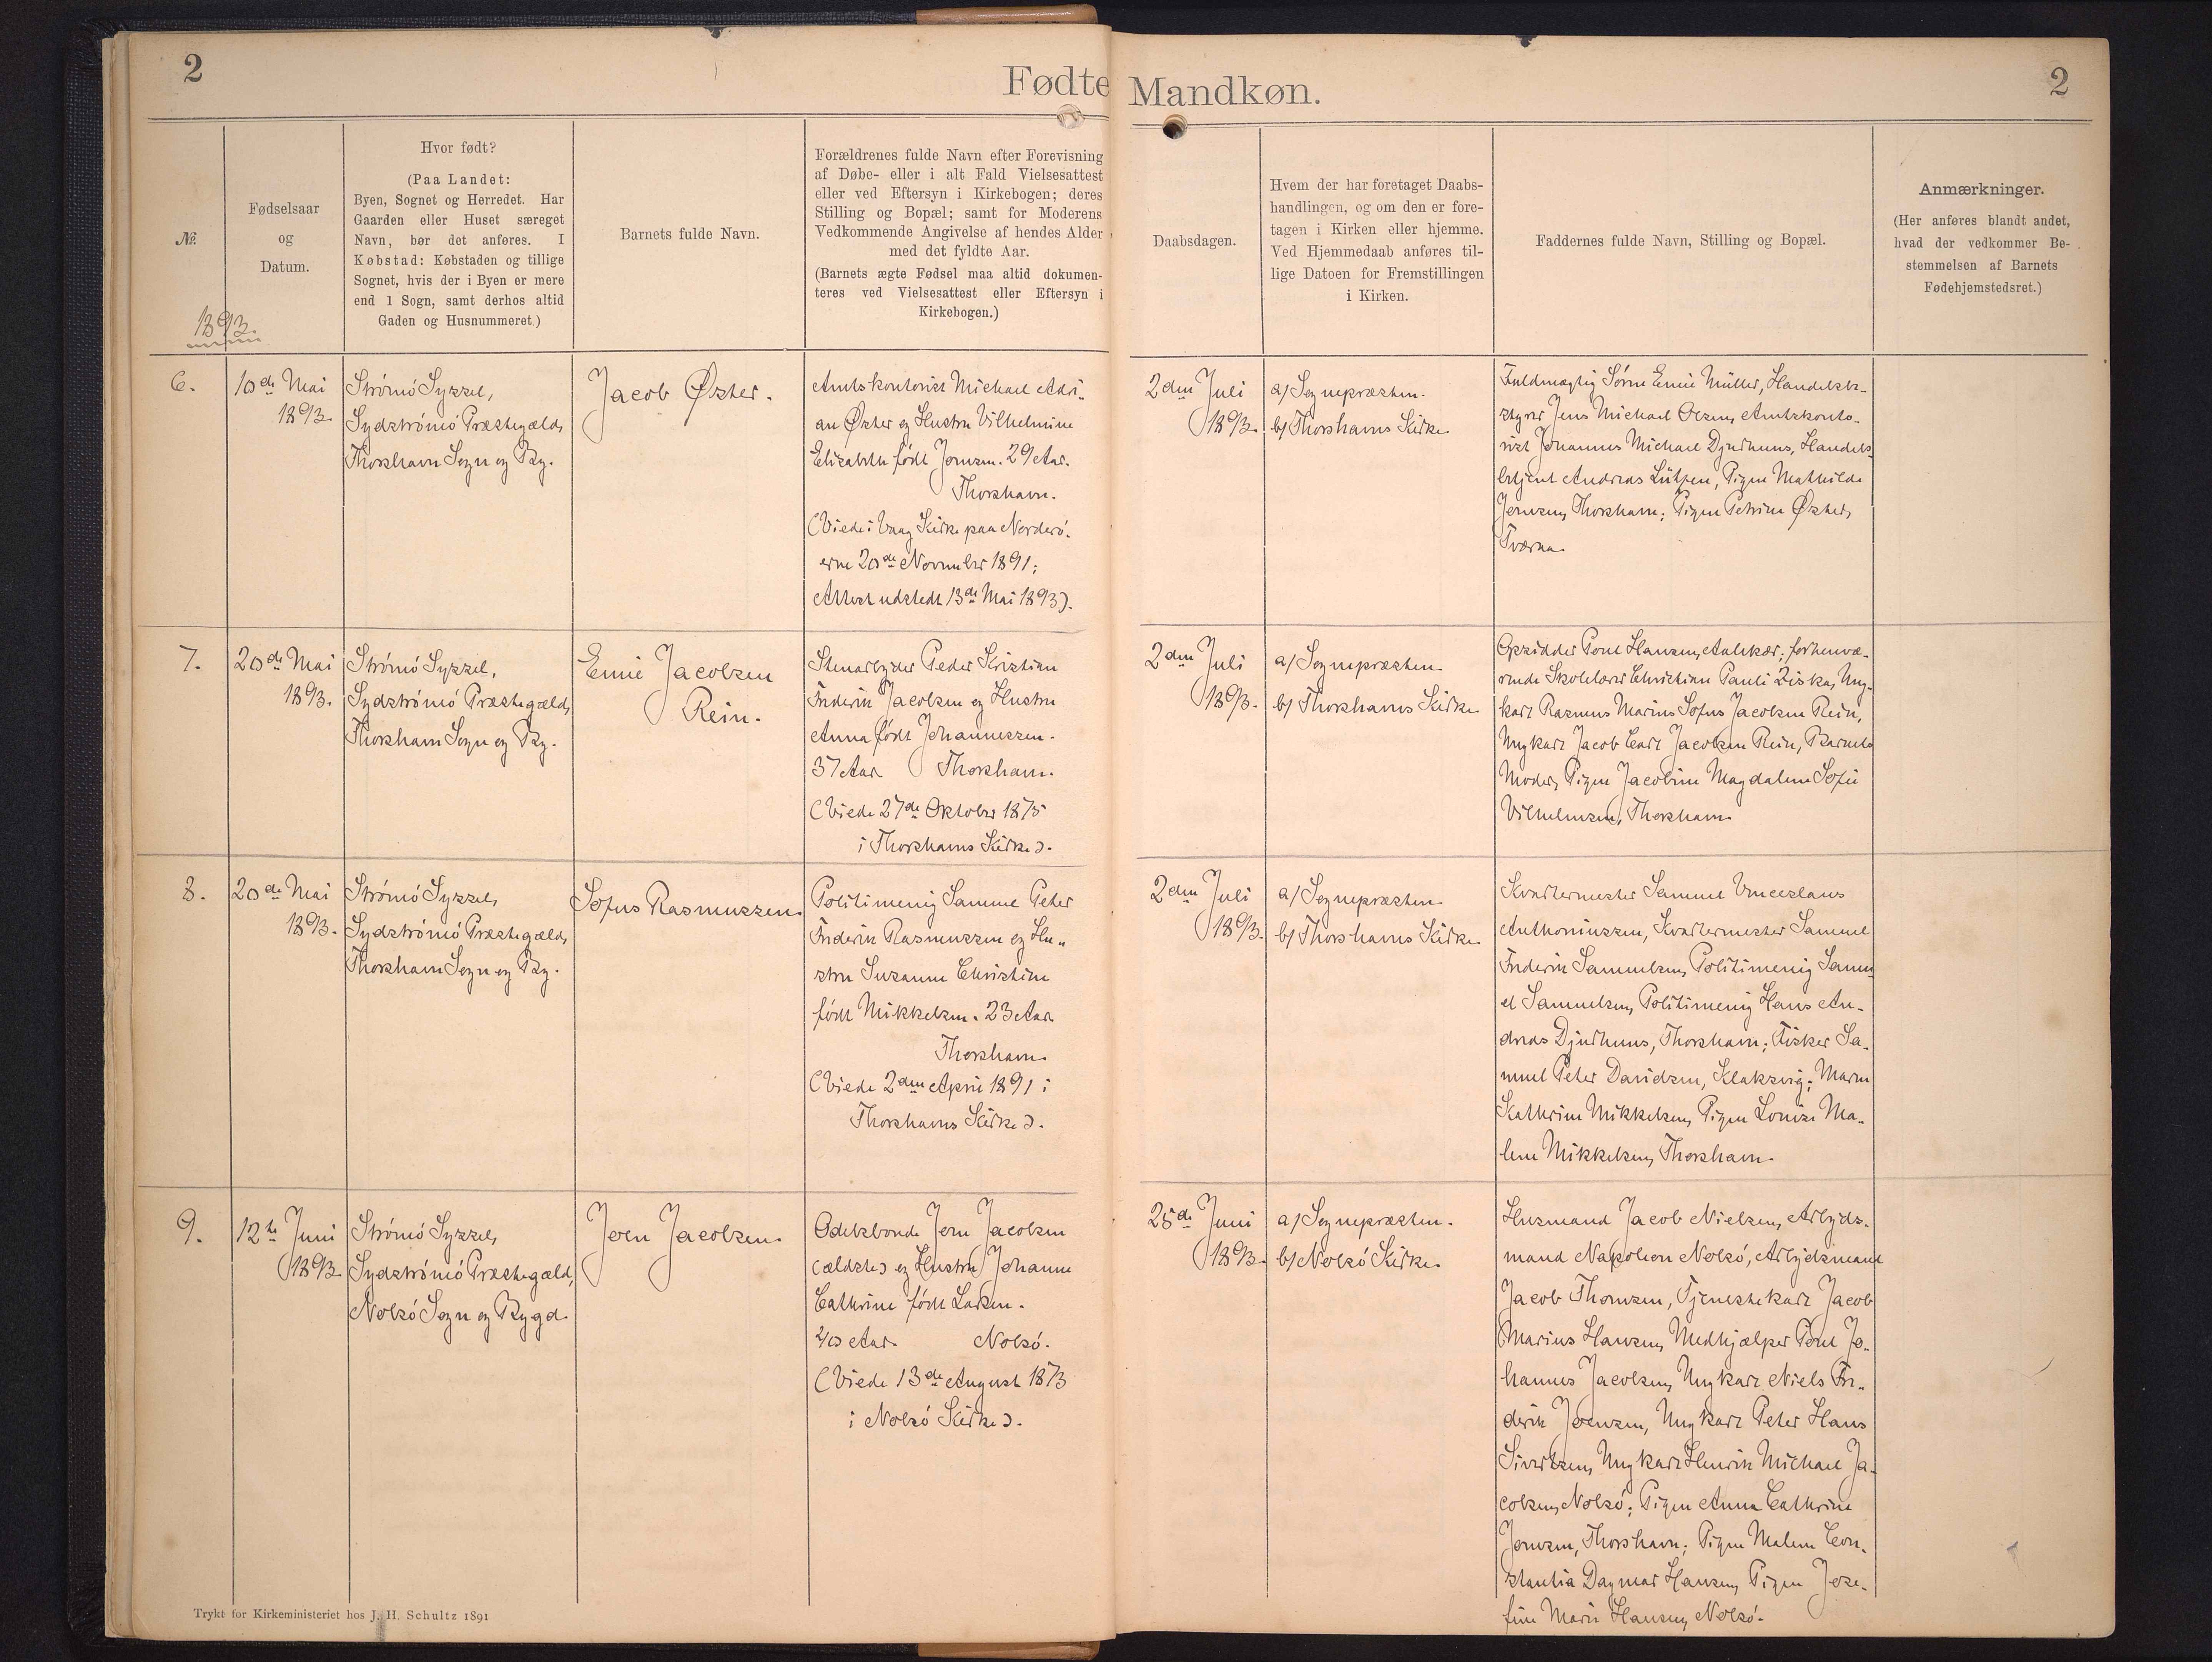 2
Fødte Mandkøn.
2
№.
1893.
Fødselsaar
og
Datum.
Hvor født?
(Paa Landet:
Byen, Sognet og Herredet. Har
Gaarden eller Huset særeget
Navn, bør det anføres. I
Købstad: Købstaden og tillige
Sognet, hvis der i Byen er mere
end 1 Sogn, samt derhos altid
Gaden og Husnummeret.)
Barnets fulde Navn.
Forældrenes fulde Navn efter Forevisning
af Døbe- eller i alt Fald Vielsesattest
eller ved Eftersyn i Kirkebogen; deres
Stilling og Bopæl; samt for Moderens
Vedkommende Angivelse af hendes Alder
med det fyldte Aar.
(Barnets ægte Fødsel maa altid dokumen-
teres ved Vielsesattest eller Eftersyn i
Kirkebogen.)
Daabsdagen.
Hvem der har foretaget Daabs-
handlingen, og om den er fore-
tagen i Kirken eller hjemme.
Ved Hjemmedaab anføres til-
lige Datoen for Fremstillingen
i Kirken.
Faddernes fulde Navn, Stilling og Bopæl.
Anmærkninger.
(Her anføres blandt andet,
hvad der vedkommer Be-
stemmelsen af Barnets
Fødehjemstedsret.)
6.
10de Mai
1893.
Strömö Syssel,
Sydströmö Præstegæld,
Thorshavn Sogn og By.
Jacob Øster.
Amtskontorist Michael Adri-
an Øster og Hustru Vilhelmine
Elisabeth født Joensen. 29 Aar.
Thorshavn.
(Viede i Vaag Kirke paa Norderö-
erne 20de November 1891;
Attest udstedt 13de Mai 1893).
2den Juli
1893.
a) Sognepræsten.
b) Thorshavns Kirke.
Fuldmægtig Sörin Emil Müller, Handelsbe-
styrer Jens Michael Olsen, Amtskonto-
rist Johannes Michael Djurhuus, Handels-
betjent Andreas Lützen, Pigen Mathilde
Joensen, Thorshavn; Pigen Petrine Øster,
Tværaa.
7.
20de Mai
1893.
Strömö Syssel,
Sydströmö Præstegæld,
Thorshavn Sogn og By.
Emil Jacobsen
Rein.
Stenarbejder Peder Kristian
Frederik Jacobsen og Hustru
Anna født Johannessen.
37 Aar. Thorshavn.
(Viede 27de Oktober 1875
i Thorshavns Kirke).
2den Juli
1893.
a) Sognepræsten.
b) Thorshavns Kirke.
Opsidder Poul Hansen, forhenvæ-
rende Skolelærer Christian Pauli Ziska, Ung-
karl Rasmus Marius Sofus Jacobsen Rein,
Ungkarl Jacob Carl Jacobsen Rein, Barnets
Moder, Pigen Jacobine Magdalene Sofie
Vilhelmsen, Thorshavn.
8.
20de Mai
1893.
Strömö Syssel,
Sydströmö Præstegæld,
Thorshavn Sogn og By.
Sofus Rasmussen.
Politimenig Samuel Peter
Frederik Rasmussen og Hu-
stru Susanne Christine
født Mikkelsen. 23 Aar.
Thorshavn.
(Viede 2den April 1891 i
Thorshavns Kirke).
2den Juli
1893.
a) Sognepræsten.
b) Thorshavns Kirke.
Kvartermester Samuel Venceslaus
Anthoniussen, Kvartermester Samuel
Frederik Samuelsen, Politimenig Samu-
el Samuelsen, Politimenig Hans An-
dreas Djurhuus, Thorshavn; Fisker Sa-
muel Peter Davidsen, Klaksvig; Maren
Kathrine Mikkelsen, Pigen Louise Ma-
lene Mikkelsen, Thorshavn.
9.
12te Juni
1893.
Strömö Syssel,
Sydströmö Præstegæld,
Nolsö Sogn og Bygd.
Joen Jacobsen.
Odelsbonde Joen Jacobsen
(ældste) og Hustru Johanne
Cathrine født Larsen.
40 Aar. Nolsö.
(Viede 13de August 1873
i Nolsö Kirke).
25de Juni
1893.
a) Sognepræsten.
b) Nolsö Kirke.
Husmand Jacob Nielsen, Arbejds-
mand Napoleon Nolsö, Arbejdsmand
Jacob Thomsen, Tjenestekarl Jacob
Marius Hansen, Medhjælper Poul Jo-
hannes Jacobsen, Ungkarl Niels Fre-
derik Joensen, Ungkarl Peter Hans
Sivertsen, Ungkarl Henrik Michael Ja-
cobsen, Nolsö; Pigen Anna Cathrine
Joensen, Thorshavn; Pigen Malene Con-
stantia Dagmar Hansen, Pigen Jose-
fine Marie Hansen, Nolsö.
Trykt for Kirkeministeriet hos J. H. Schultz 1891